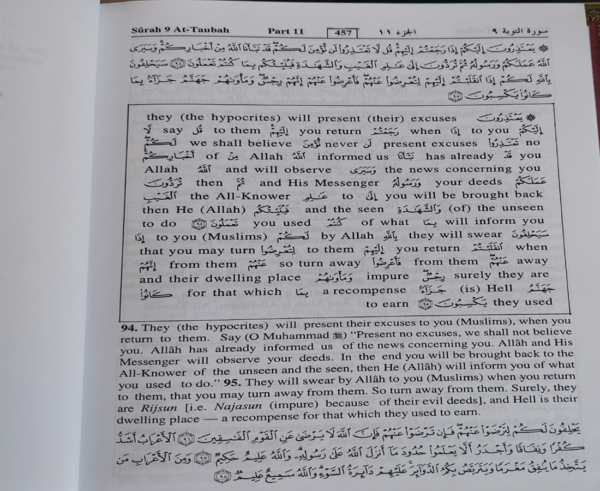 Sûrah 9 At-Taubah Part 11 457 الجزء ١١ سورة التوبة ٩
۞ يَعْتَذِرُونَ إِلَيْكُمْ إِذَا رَجَعْتُمْ إِلَيْهِمْ قُل لَّا تَعْتَذِرُوا۟ لَن نُّؤْمِنَ لَكُمْ قَدْ نَبَّأَنَا ٱللَّهُ مِنْ أَخْبَارِكُمْ وَسَيَرَى
ٱللَّهُ عَمَلَكُمْ وَرَسُولُهُۥ ثُمَّ تُرَدُّونَ إِلَىٰ عَٰلِمِ ٱلْغَيْبِ وَٱلشَّهَٰدَةِ فَيُنَبِّئُكُم بِمَا كُنتُمْ تَعْمَلُونَ ٩٤ سَيَحْلِفُونَ
بِٱللَّهِ لَكُمْ إِذَا ٱنقَلَبْتُمْ إِلَيْهِمْ لِتُعْرِضُوا۟ عَنْهُمْ فَأَعْرِضُوا۟ عَنْهُمْ إِنَّهُمْ رِجْسٌ وَمَأْوَىٰهُمْ جَهَنَّمُ جَزَآءًۢ بِمَا
كَانُوا۟ يَكْسِبُونَ ٩٥
۞ يَعْتَذِرُونَ they (the hypocrites) will present (their) excuses
إِلَيْكُمْ to you إِذَا when رَجَعْتُمْ you return إِلَيْهِمْ to them قُل say لَّا
no تَعْتَذِرُوا۟ present excuses لَن never نُّؤْمِنَ we shall believe لَكُمْ
you قَدْ has already نَبَّأَنَا informed us ٱللَّهُ Allah مِنْ of أَخْبَارِكُمْ
the news concerning you وَسَيَرَى and will observe ٱللَّهُ Allah
عَمَلَكُمْ your deeds وَرَسُولُهُۥ and His Messenger ثُمَّ then تُرَدُّونَ
you will be brought back إِلَىٰ to عَٰلِمِ the All-Knower ٱلْغَيْبِ
(of) the unseen وَٱلشَّهَٰدَةِ and the seen فَيُنَبِّئُكُم then He (Allah)
will inform you بِمَا of what كُنتُمْ you used تَعْمَلُونَ ٩٤ to do
سَيَحْلِفُونَ they will swear بِٱللَّهِ by Allah لَكُمْ to you (Muslims) إِذَا
when ٱنقَلَبْتُمْ you return إِلَيْهِمْ to them لِتُعْرِضُوا۟ that you may turn
away عَنْهُمْ from them فَأَعْرِضُوا۟ so turn away عَنْهُمْ from them إِنَّهُمْ
surely they are رِجْسٌ impure وَمَأْوَىٰهُمْ and their dwelling place
جَهَنَّمُ (is) Hell جَزَآءًۢ a recompense بِمَا for that which كَانُوا۟
they used يَكْسِبُونَ ٩٥ to earn
94. They (the hypocrites) will present their excuses to you (Muslims), when you
return to them. Say (O Muhammad ﷺ) "Present no excuses, we shall not believe
you. Allâh has already informed us of the news concerning you. Allâh and His
Messenger will observe your deeds. In the end you will be brought back to the
All-Knower of the unseen and the seen, then He (Allâh) will inform you of what
you used to do." 95. They will swear by Allâh to you (Muslims) when you return
to them, that you may turn away from them. So turn away from them. Surely, they
are Rijsun [i.e. Najasun (impure) because of their evil deeds], and Hell is their
dwelling place — a recompense for that which they used to earn.
يَحْلِفُونَ لَكُمْ لِتَرْضَوْا۟ عَنْهُمْ فَإِن تَرْضَوْا۟ عَنْهُمْ فَإِنَّ ٱللَّهَ لَا يَرْضَىٰ عَنِ ٱلْقَوْمِ ٱلْفَٰسِقِينَ ٩٦ ٱلْأَعْرَابُ أَشَدُّ
كُفْرًا وَنِفَاقًا وَأَجْدَرُ أَلَّا يَعْلَمُوا۟ حُدُودَ مَآ أَنزَلَ ٱللَّهُ عَلَىٰ رَسُولِهِۦ وَٱللَّهُ عَلِيمٌ حَكِيمٌ ٩٧ وَمِنَ ٱلْأَعْرَابِ مَن
يَتَّخِذُ مَا يُنفِقُ مَغْرَمًا وَيَتَرَبَّصُ بِكُمُ ٱلدَّوَآئِرَ عَلَيْهِمْ دَآئِرَةُ ٱلسَّوْءِ وَٱللَّهُ سَمِيعٌ عَلِيمٌ ٩٨